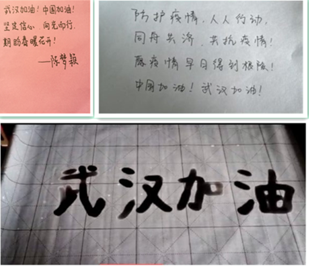 武汉加油！中国加油！
坚定信心，向光而行，
期盼春暖花开！
——陈梦颖
防护疫情，人人行动，
同舟共济，共抗疫情！
愿疫情早日得到控制！
中国加油！武汉加油！
武汉加油